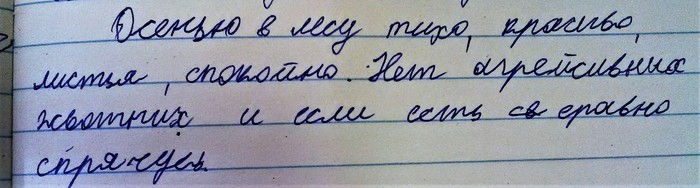 Осенью в лесу тихо, красиво,
листья, спокойно. Нет агрейсивних
жвотних и если есть св еравно
спрячуся.